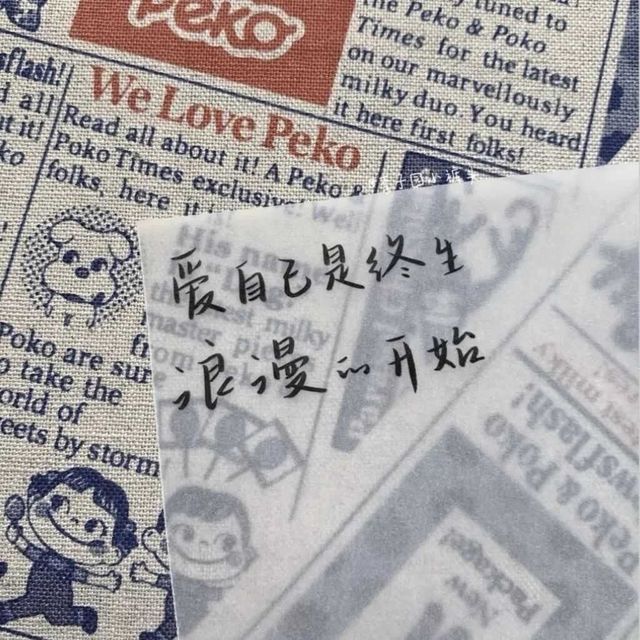 Peko
We Love Peko
Read all about it! A Peko &
Poko Times exclusive! Well
folks, here it is
tuned to
the Peko & Poko
Times for the latest
on our marvellously
milky duo. You heard
it here first folks!
sflash!
d all
t it!
ko
爱自己是终生
浪漫的开始
His name
milky
master pie
from
Poko are sure
o take the
orld of
eets by storm
wsflash!
Peko & Poko
New
Package!